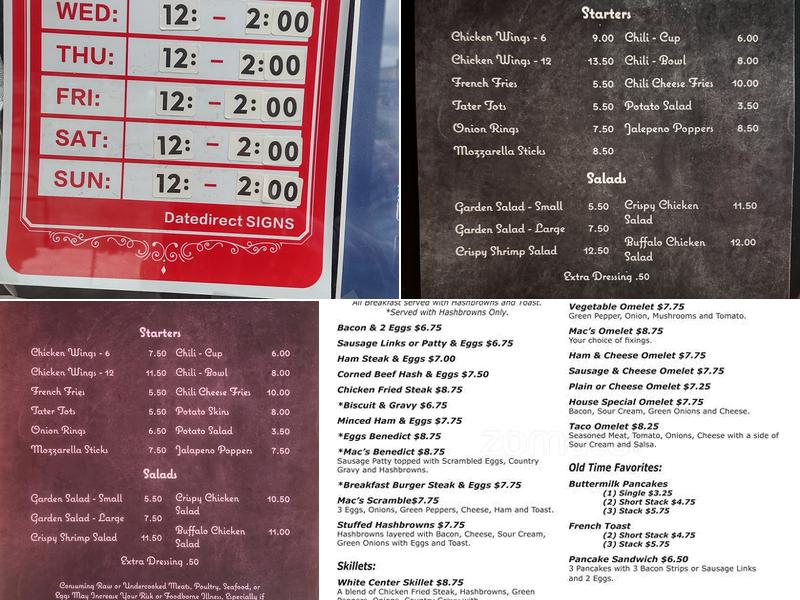 WED: 12: - 2:00
THU: 12: - 2:00
FRI: 12: - 2:00
SAT: 12: - 2:00
SUN: 12: - 2:00
Datedirect SIGNS
Starters
Chicken Wings - 6 9.00 Chili - Cup 6.00
Chicken Wings - 12 13.50 Chili - Bowl 8.00
French Fries 5.50 Chili Cheese Fries 10.00
Tater Tots 5.50 Potato Salad 3.50
Onion Rings 7.50 Jalepeno Poppers 8.50
Mozzarella Sticks 8.50
Salads
Garden Salad - Small 5.50 Crispy Chicken 11.50
Salad
Garden Salad - Large 7.50
Crispy Shrimp Salad 12.50 Buffalo Chicken 12.00
Salad
Extra Dressing .50
Starters
Chicken Wings - 6 7.50 Chili - Cup 6.00
Chicken Wings - 12 11.50 Chili - Bowl 8.00
French Fries 5.50 Chili Cheese Fries 10.00
Tater Tots 5.50 Potato Skins 8.00
Onion Rings 6.50 Potato Salad 3.50
Mozzarella Sticks 7.50 Jalapeno Poppers 7.50
Salads
Garden Salad - Small 5.50 Crispy Chicken 10.50
Salad
Garden Salad - Large 7.50
Crispy Shrimp Salad 11.50 Buffalo Chicken 11.00
Salad
Extra Dressing .50
Consuming Raw or Undercooked Meats, Poultry, Seafood, or
Eggs May Increase Your Risk or Foodborne Illness, Especially if
All Breakfast served with Hashbrowns and Toast.
*Served with Hashbrowns Only.
Bacon & 2 Eggs $6.75
Sausage Links or Patty & Eggs $6.75
Ham Steak & Eggs $7.00
Corned Beef Hash & Eggs $7.50
Chicken Fried Steak $8.75
*Biscuit & Gravy $6.75
Minced Ham & Eggs $7.75
*Eggs Benedict $8.75
*Mac's Benedict $8.75
Sausage Patty topped with Scrambled Eggs, Country
Gravy and Hashbrowns.
*Breakfast Burger Steak & Eggs $7.75
Mac's Scramble$7.75
3 Eggs, Onions, Green Peppers, Cheese, Ham and Toast.
Stuffed Hashbrowns $7.75
Hashbrowns layered with Bacon, Cheese, Sour Cream,
Green Onions with Eggs and Toast.
Skillets:
White Center Skillet $8.75
A blend of Chicken Fried Steak, Hashbrowns, Green
Peppers, Onions, Country Gravy with
Vegetable Omelet $7.75
Green Pepper, Onion, Mushrooms and Tomato.
Mac's Omelet $8.75
Your choice of fixings.
Ham & Cheese Omelet $7.75
Sausage & Cheese Omelet $7.75
Plain or Cheese Omelet $7.25
House Special Omelet $7.75
Bacon, Sour Cream, Green Onions and Cheese.
Taco Omelet $8.25
Seasoned Meat, Tomato, Onions, Cheese with a side of
Sour Cream and Salsa.
Old Time Favorites:
Buttermilk Pancakes
(1) Single $3.25
(2) Short Stack $4.75
(3) Stack $5.75
French Toast
(2) Short Stack $4.75
(3) Stack $5.75
Pancake Sandwich $6.50
3 Pancakes with 3 Bacon Strips or Sausage Links
and 2 Eggs.